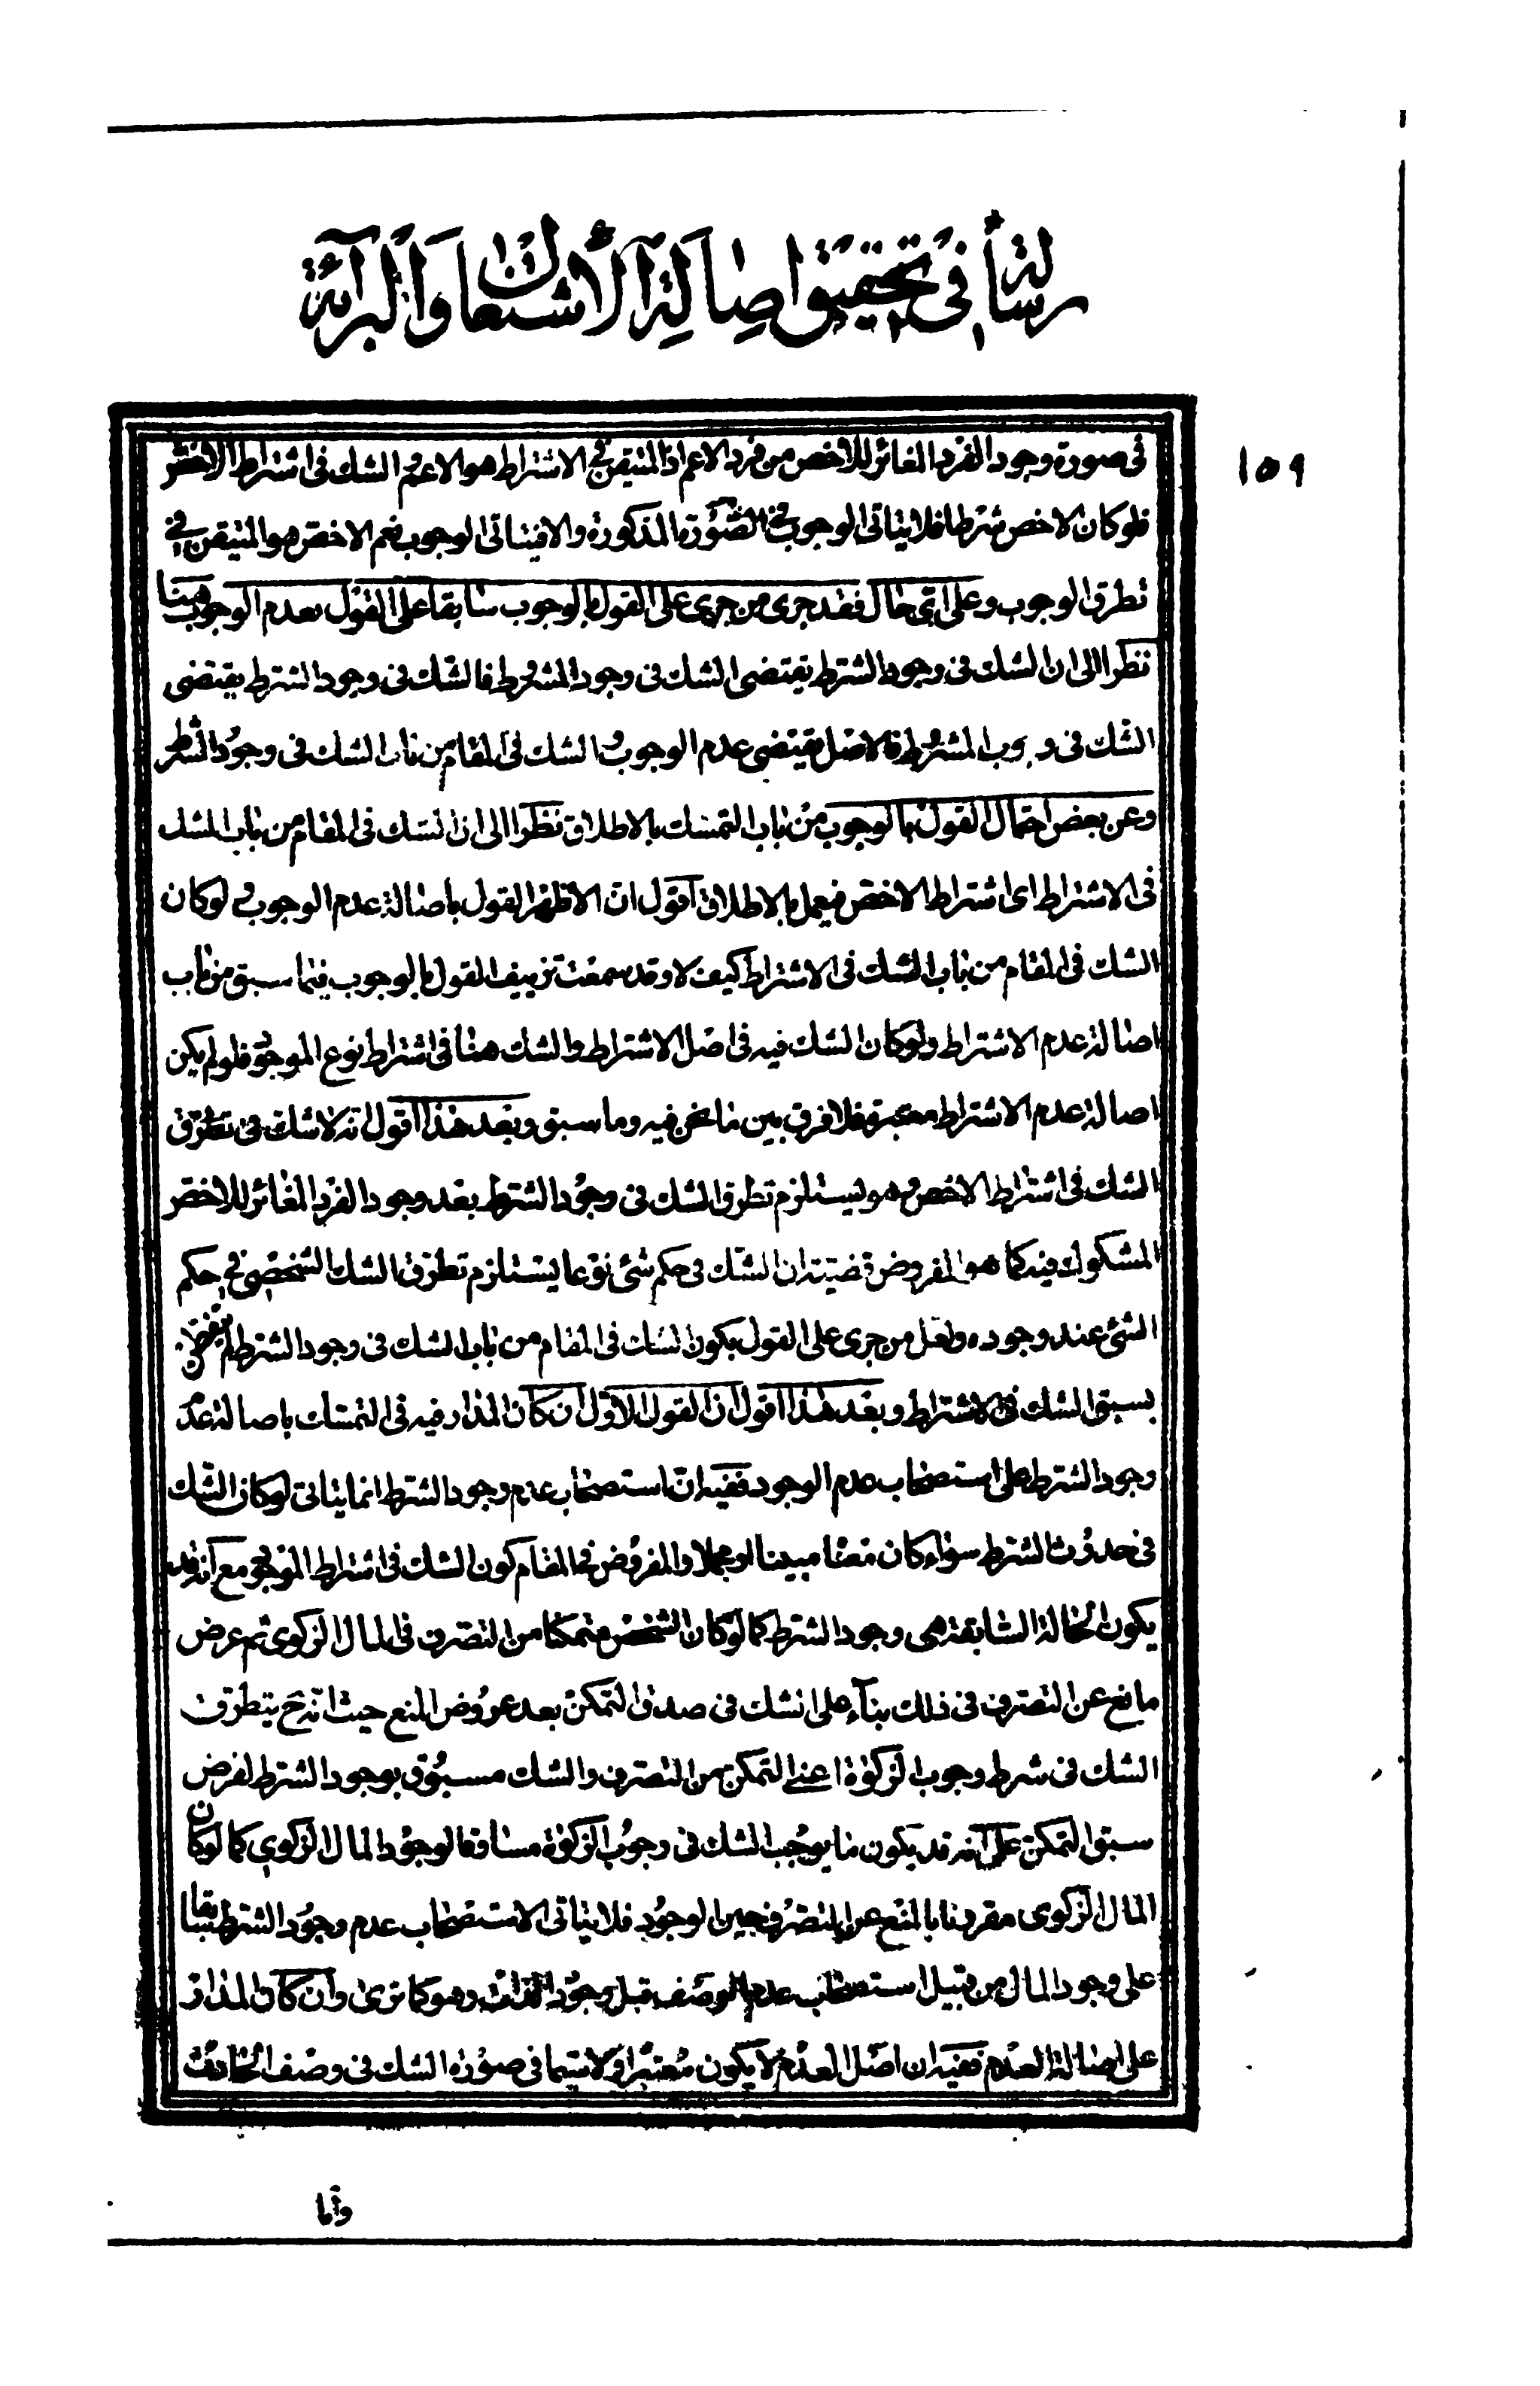 رسالة في تحقيق اصالة الاشتغال والبرائة
١٥٩
فى صورة وجود الفرد المغائر للاخص من فرد الاعم اذ المتيقن فى الاشتراط هو الاعم و الشك فى اشتراط الاخص
فلو كان الاخص شرطا فلا يتاتى الوجوب فى الصورة المذكورة والا فيتاتى الوجوب نعم الاخص هو المتيقن فى
تطرق الوجوب وعلى اى حال فقد جرى من جرى على القول بالوجوب سابقا على القول بعدم الوجوب هنا
نظرا الى ان الشك فى وجود الشرط يقتضى الشك فى وجود المشروط فالشك فى وجود الشرط يقتضى
الشك فى وجوب المشروط فالاصل يقتضى عدم الوجوب و الشك فى المقام من باب الشك فى وجود الشرط
وعن بعض احتمال القول بالوجوب من باب التمسك بالاطلاق نظرا الى ان الشك فى المقام من باب الشك
فى الاشتراط اى اشتراط الاخص فيعمل بالاطلاق اقول ان الاظهر القول باصالة عدم الوجوب و لو كان
الشك فى المقام من باب الشك فى الاشتراط كيف لا وقد سمعت تزييف القول بالوجوب فيما سبق من باب
اصالة عدم الاشتراط ولو كان الشك فيه فى اصل الاشتراط والشك هنا فى اشتراط نوع الموجود فلو لم يكن
اصالة عدم الاشتراط معتبرة فلا فرق بين ما نحن فيه وما سبق وبعد هذا اقول انه لا شك فى تطرق
الشك فى اشتراط الاخص و هو يستلزم تطرق الشك فى وجود الشرط بعد وجود الفرد المغائر للاخص
المشكوك فيه كما هو المفروض قضية ان الشك فى حكم شئ نوعا يستلزم تطرق الشك الشخصى فى حكم
الشئ عند وجوده ولعل من جرى على القول بكون الشك فى المقام من باب الشك فى وجود الشرط لم يتفطن
بسبق الشك فى الاشتراط وبعد هذا اقول ان القول الاول ان كان المدار فيه فى التمسك باصالة عدم
وجود الشرط على استصحاب عدم الوجود ففيه ان استصحاب عدم وجود الشرط انما يتاتى لو كان الشك
فى حدوث الشرط سواء كان معنا مبينا او مجملا والمفروض فى المقام كون الشك فى اشتراط الموجود مع انه قد
يكون الحالة السابقة هى وجود الشرط كما لو كان الشخص متمكنا من التصرف فى المال الزكوى ثم عرض
مانع عن التصرف فى ذلك بناء على الشك فى صدق التمكن بعد عروض المنع حيث انه ح يتطرق
الشك فى شرط وجوب الزكوة اعنى التمكن من التصرف والشك مسبوق بوجود الشرط لفرض
سبق التمكن على انه قد يكون ما يوجب الشك فى وجوب الزكوة مساوقا لوجود المال الزكوى كما لو كان
المال الزكوى مقرونا بالمنع عن التصرف حين الوجود فلا يتاتى الاستصحاب عدم وجود الشرط سابقا
على وجود المال من قبيل استصحاب عدم الوصف قبل وجود الذات وهو كما ترى وان كان المدار
على اصالة العدم ففيه ان اصل العدم لا يكون معتبرا ولا سيما فى صورة الشك فى وصف الحادث
واما